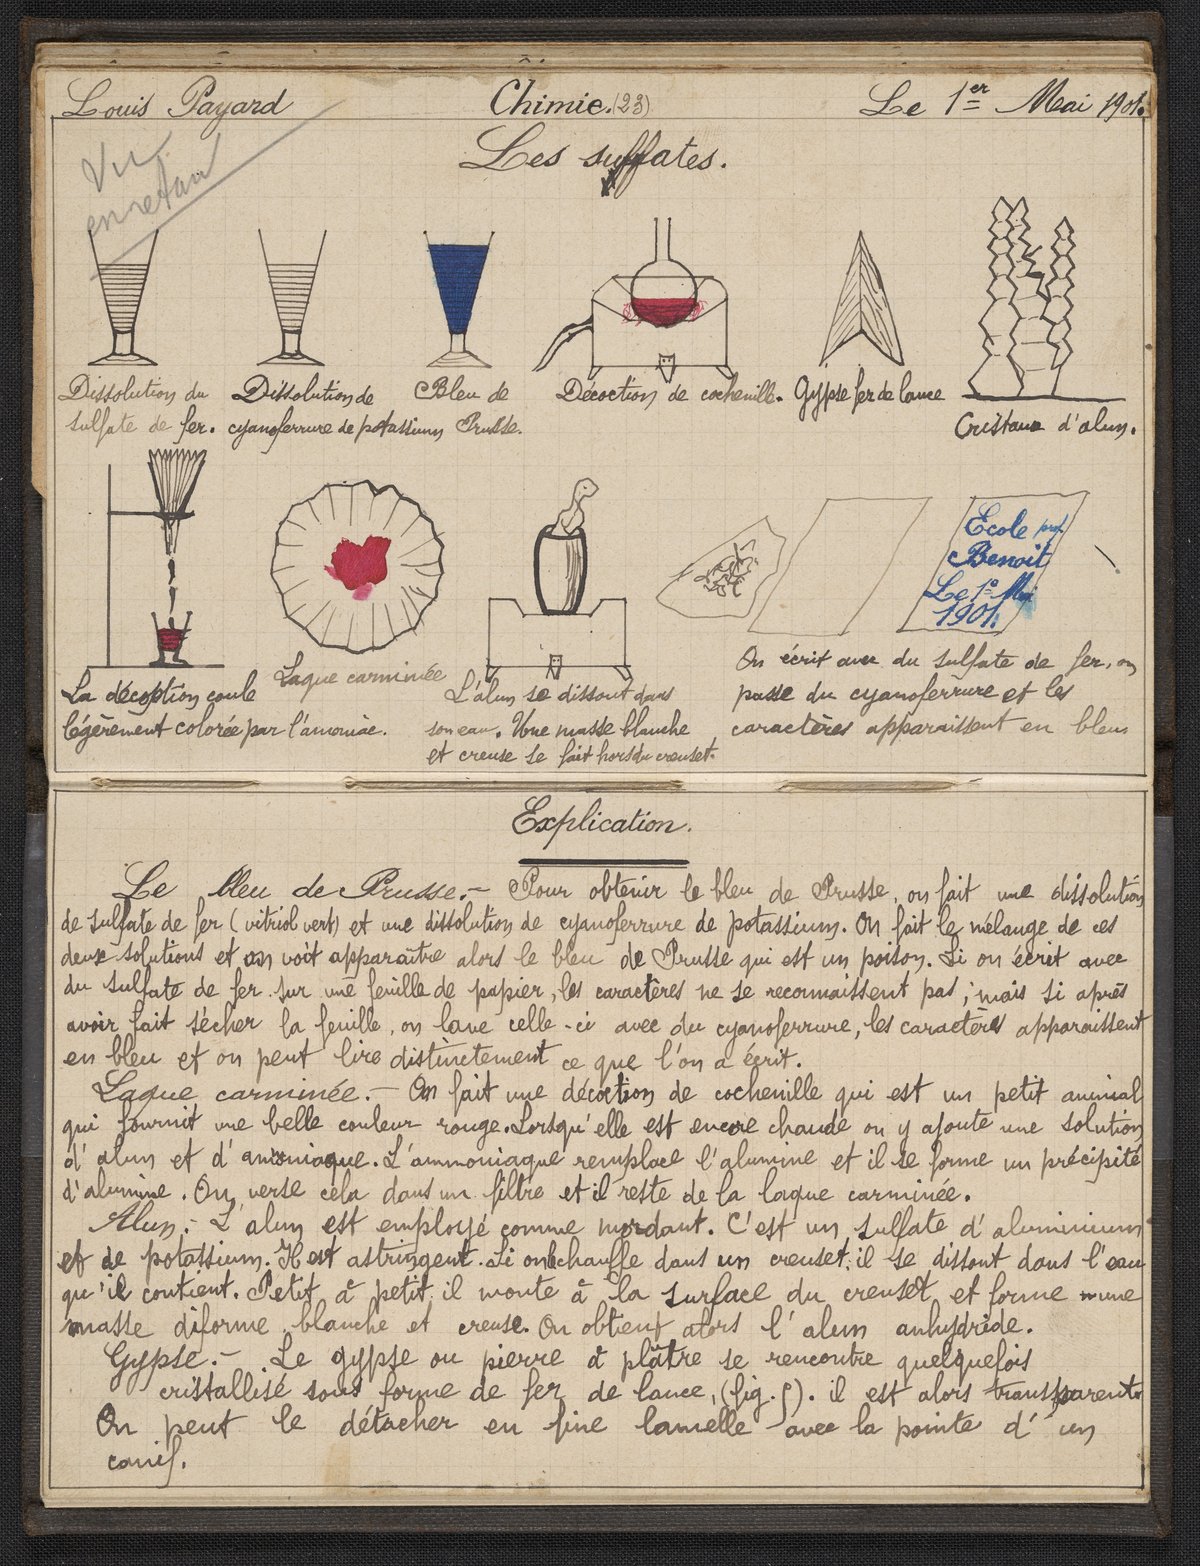 Louis Payard
Chimie. (23)
Le 1er Mai 1901.
Vu
en retard
Les sulfates.
Dissolution du
sulfate de fer.
Dissolution de
cyanoferrure de potassium
Bleu de
Prusse.
Décoction de cochenille.
Gypse fer de lance
Cristaux d'alun.
La décoption coule
légèrement colorée par l'amoniac.
Laque carminée
L'alun se dissout dans
son eau. Une masse blanche
et creuse se fait hors du creuset.
Ecole prof.
Benoit
Le 1e Mai
1901.
On écrit avec du sulfate de fer, on
passe du cyanoferrure et les
caractères apparaissent en bleu
Explication.
Le bleu de Prusse.- Pour obtenir le bleu de Prusse, on fait une dissolution
de sulfate de fer (vitriol vert) et une dissolution de cyanoferrure de potassium. On fait le mélange de ces
deux solutions et on voit apparaître alors le bleu de Prusse qui est un poison. Si on écrit avec
du sulfate de fer sur une feuille de papier, les caractères ne se reconnaissent pas; mais si après
avoir fait sécher la feuille, on lave celle-ci avec du cyanoferrure, les caractères apparaissent
en bleu et on peut lire distinctement ce que l'on a écrit.
Laque carminée.- On fait une décoction de cochenille qui est un petit animal
qui fournit une belle couleur rouge. Lorsqu'elle est encore chaude on y ajoute une solution
d'alun et d'amoniaque. L'ammoniaque remplace l'alumine et il se forme un précipité
d'alumine. On verse cela dans un filtre et il reste de la laque carminée.
Alun.- L'alun est employé comme mordant. C'est un sulfate d'aluminium
et de potassium. Il est astringent. Si on chauffe dans un creuset, il se dissout dans l'eau
qu'il contient. Petit à petit il monte à la surface du creuset et forme une
masse diforme blanche et creuse. On obtient alors l'alun anhydride.
Gypse.- Le gypse ou pierre à plâtre se rencontre quelquefois
cristallisé sous forme de fer de lance, (fig. 5). il est alors transparent
On peut le détacher en fine lamelle avec la pointe d'un
canif.